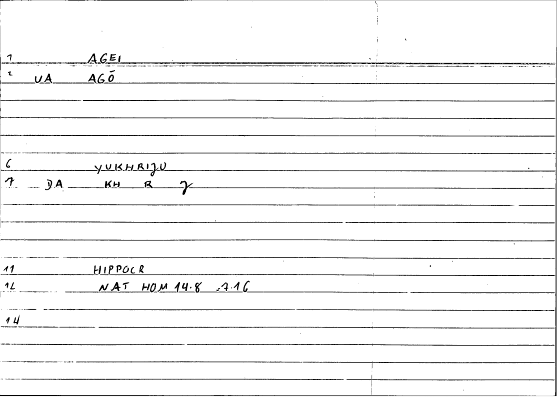 1 AGEI
2 UA AGŌ
6 YUKHRIJU
7 DA KH R J
11 HIPPOCR
12 NAT HOM 14.8 .7.16
14